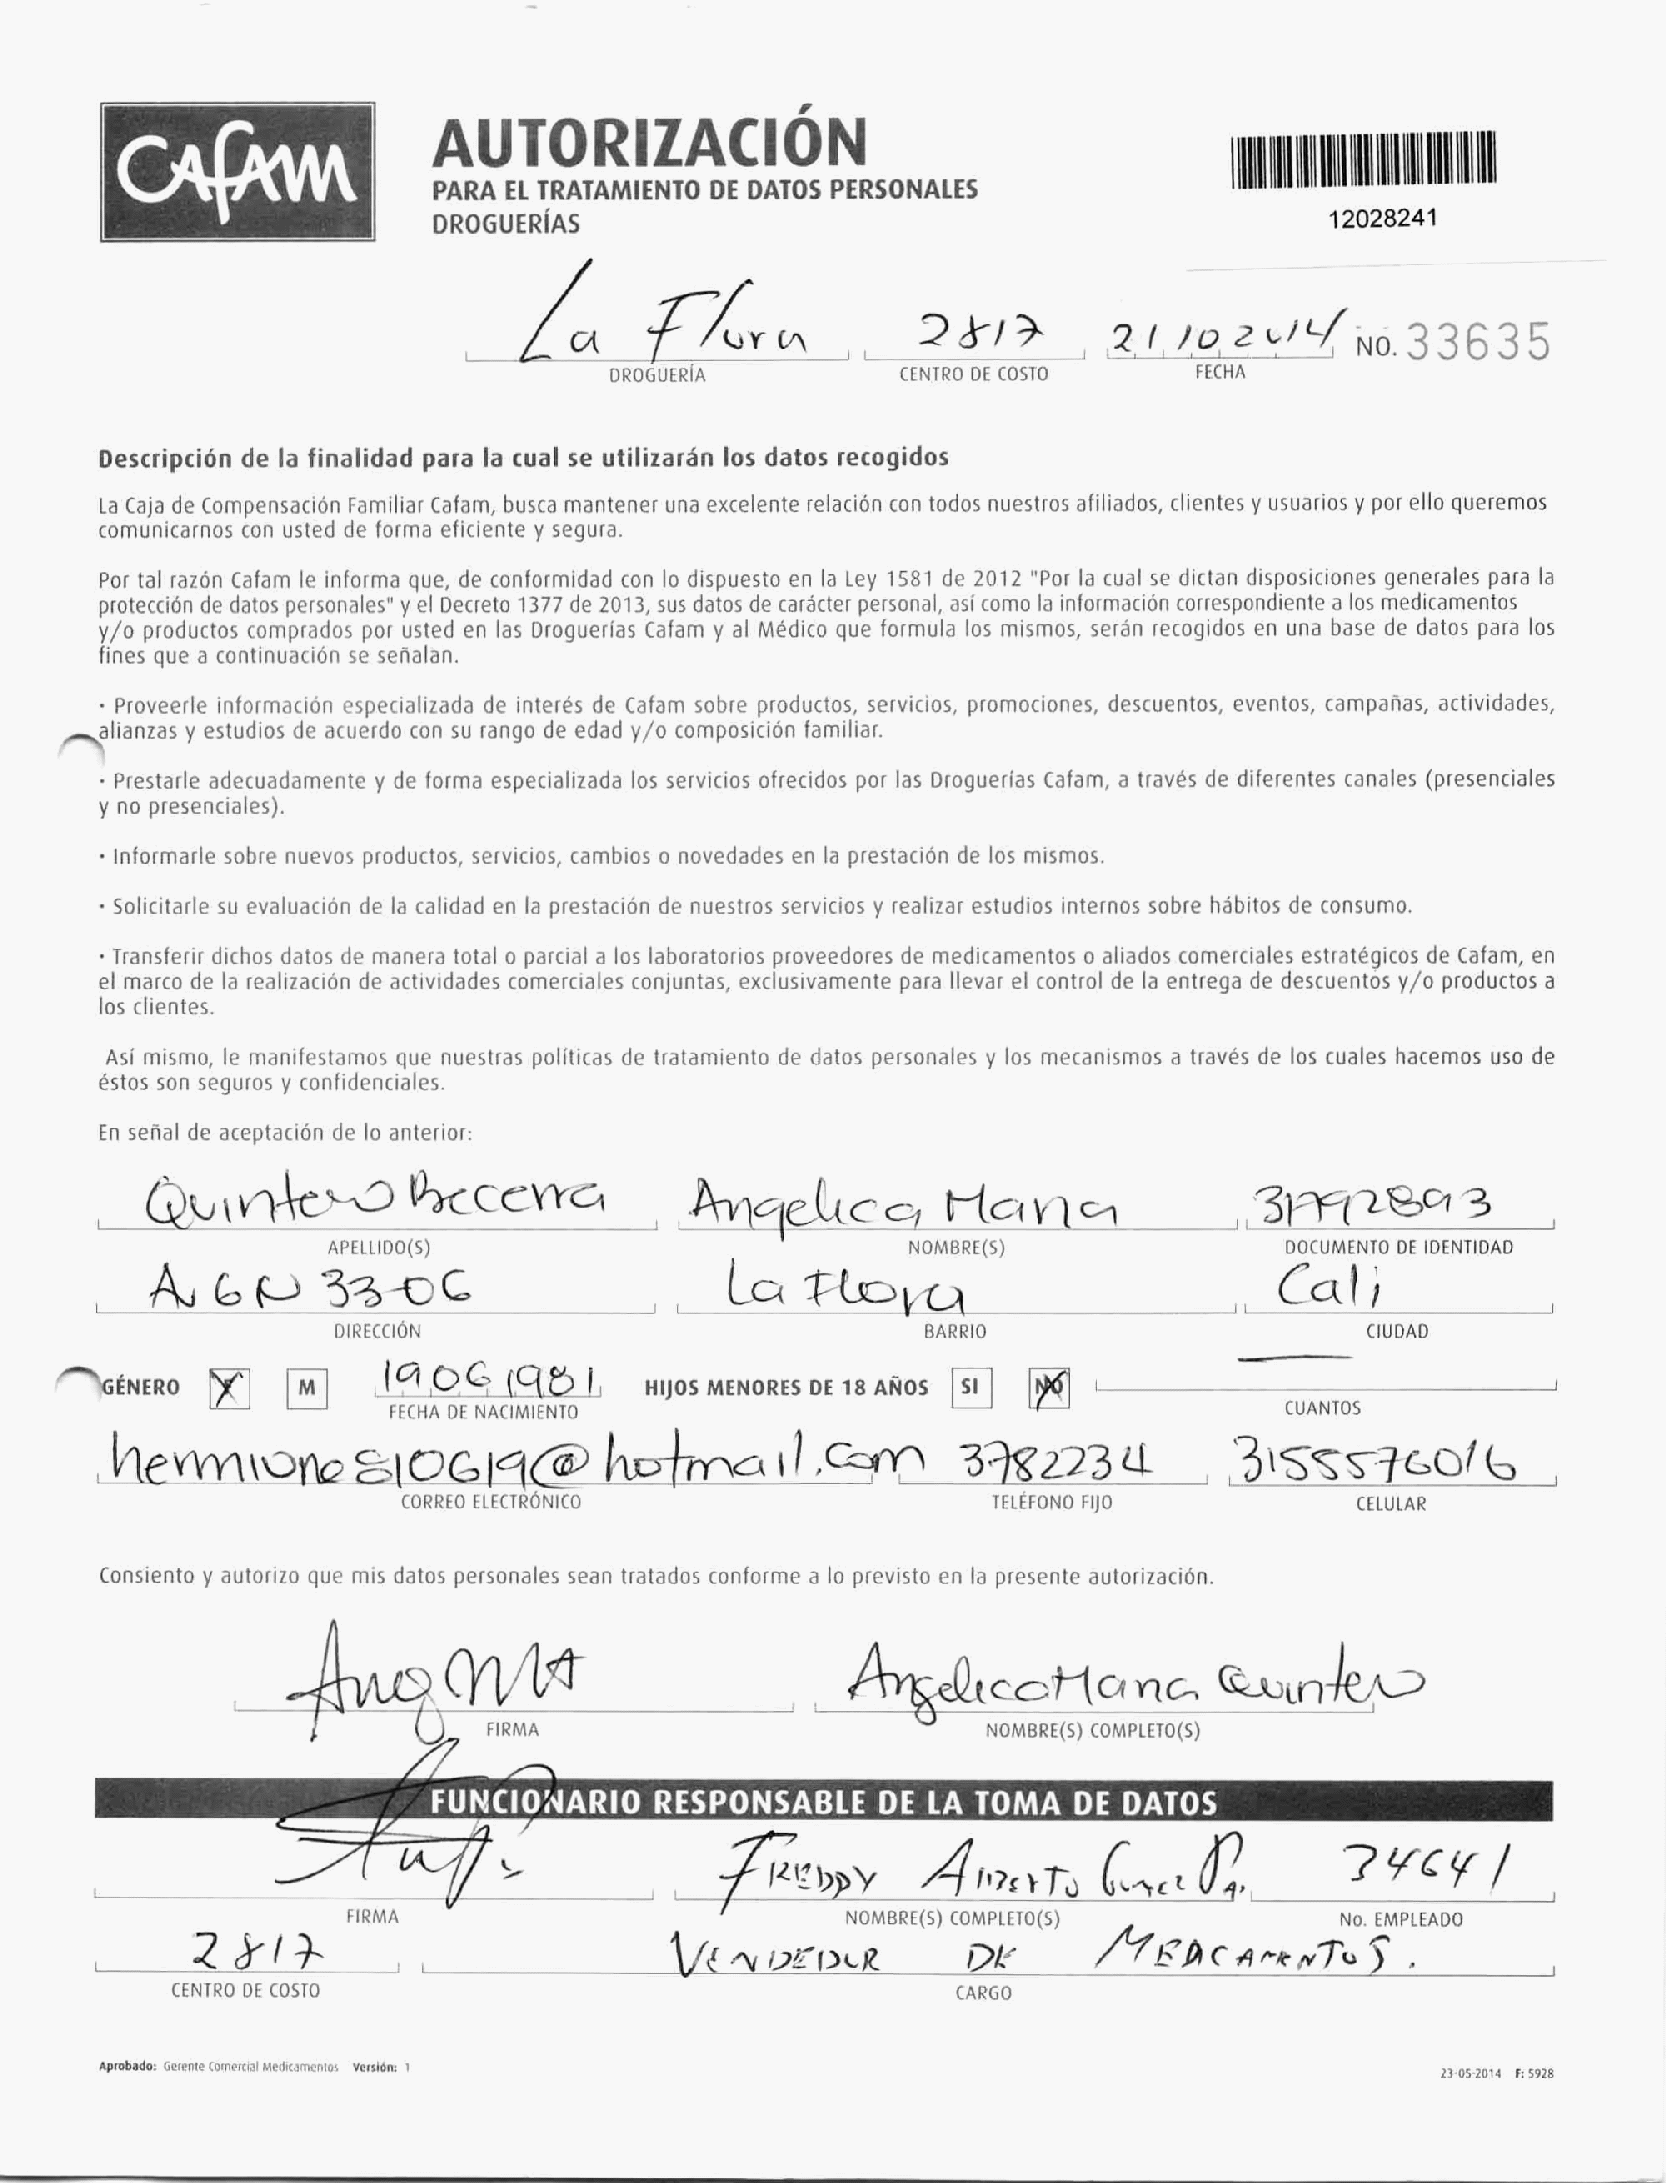 Cafam
AUTORIZACIÓN
PARA EL TRATAMIENTO DE DATOS PERSONALES
DROGUERÍAS
12028241
La Flora 2817 21 10 2014 NO. 33635
DROGUERÍA CENTRO DE COSTO FECHA
Descripción de la finalidad para la cual se utilizarán los datos recogidos
La Caja de Compensación Familiar Cafam, busca mantener una excelente relación con todos nuestros afiliados, clientes y usuarios y por ello queremos
comunicarnos con usted de forma eficiente y segura.
Por tal razón Cafam le informa que, de conformidad con lo dispuesto en la Ley 1581 de 2012 "Por la cual se dictan disposiciones generales para la
protección de datos personales" y el Decreto 1377 de 2013, sus datos de carácter personal, así como la información correspondiente a los medicamentos
y/o productos comprados por usted en las Droguerías Cafam y al Médico que formula los mismos, serán recogidos en una base de datos para los
fines que a continuación se señalan.
· Proveerle información especializada de interés de Cafam sobre productos, servicios, promociones, descuentos, eventos, campañas, actividades,
alianzas y estudios de acuerdo con su rango de edad y/o composición familiar.
· Prestarle adecuadamente y de forma especializada los servicios ofrecidos por las Droguerías Cafam, a través de diferentes canales (presenciales
y no presenciales).
· Informarle sobre nuevos productos, servicios, cambios o novedades en la prestación de los mismos.
· Solicitarle su evaluación de la calidad en la prestación de nuestros servicios y realizar estudios internos sobre hábitos de consumo.
· Transferir dichos datos de manera total o parcial a los laboratorios proveedores de medicamentos o aliados comerciales estratégicos de Cafam, en
el marco de la realización de actividades comerciales conjuntas, exclusivamente para llevar el control de la entrega de descuentos y/o productos a
los clientes.
Así mismo, le manifestamos que nuestras políticas de tratamiento de datos personales y los mecanismos a través de los cuales hacemos uso de
éstos son seguros y confidenciales.
En señal de aceptación de lo anterior:
Quintero Becerra Angelica Maria
APELLIDO(S) NOMBRE(S) DOCUMENTO DE IDENTIDAD
33-06 La Flora Cali
DIRECCIÓN BARRIO CIUDAD
GÉNERO X M 19 06 1981 HIJOS MENORES DE 18 AÑOS SI NO
FECHA DE NACIMIENTO CUANTOS
hermione810619@hotmail.com 3782234 3155576016
CORREO ELECTRÓNICO TELÉFONO FIJO CELULAR
Consiento y autorizo que mis datos personales sean tratados conforme a lo previsto en la presente autorización.
Angelica Maria Quintero
FIRMA NOMBRE(S) COMPLETO(S)
FUNCIONARIO RESPONSABLE DE LA TOMA DE DATOS
FREDDY Alberto 34641
FIRMA NOMBRE(S) COMPLETO(S) No. EMPLEADO
2817 VENDEDOR DE
CENTRO DE COSTO CARGO
Aprobado: Gerente Comercial Medicamentos Versión: 1
23-05-2014 F: 5928